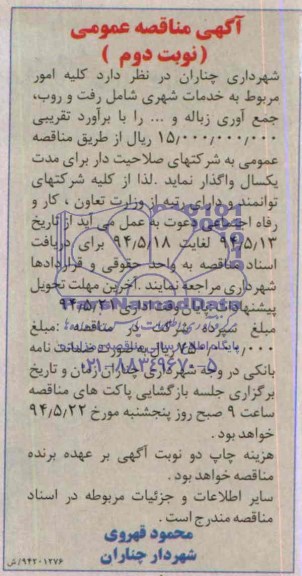 آگهی مناقصه عمومی
(نوبت دوم )
شهرداری چناران در نظر دارد کلیه امور
مربوط به خدمات شهری شامل رفت و روب،
جمع آوری زباله و ... را با برآورد تقریبی
۱۵/۰۰۰/۰۰۰/۰۰۰ ریال از طریق مناقصه
عمومی به شرکتهای صلاحیت دار برای مدت
یکسال واگذار نماید .لذا از کلیه شرکتهای
توانمند و دارای رتبه از وزارت تعاون ، کار و
رفاه اجتماعی دعوت به عمل می آید از تاریخ
۹۴/۵/۱۳ لغایت ۹۴/۵/۱۸ برای دریافت
اسناد مناقصه به واحد حقوقی و قراردادها
شهرداری مراجعه نمایند .آخرین مهلت تحویل
پیشنهادات پایان وقت اداری ۹۴/۵/۲۱
مبلغ سپرده شرکت در مناقصه :مبلغ
ریال به صورت ضمانت نامه
بانکی در وجه شهرداری چناران زمان و تاریخ
برگزاری جلسه بازگشایی پاکت های مناقصه
ساعت ۹ صبح روز پنجشنبه مورخ ۹۴/۵/۲۲
خواهد بود .
هزینه چاپ دو نوبت آگهی بر عهده برنده
مناقصه خواهد بود .
سایر اطلاعات و جزئیات مربوطه در اسناد
مناقصه مندرج است .
محمود قهروی
شهردار چناران
۹۴۲۰۱۲۷۶/ش
پایگاه اطلاع رسانی مناقصه و مزایده
۰۲۱-۸۸۳۴۹۶۷۰-۵